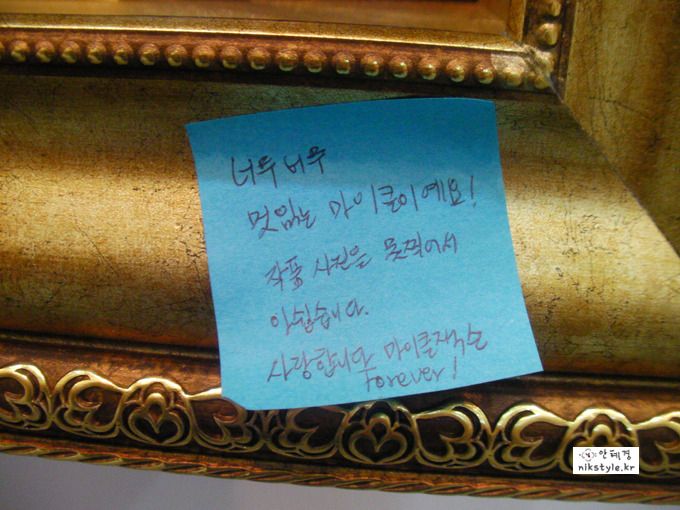 너무 너무
멋있는 마이클이예요!
작품 사진을 못찍어서
아쉽습니다.
사랑합니다 마이클잭슨
forever!
안혜경
nikstyle.kr